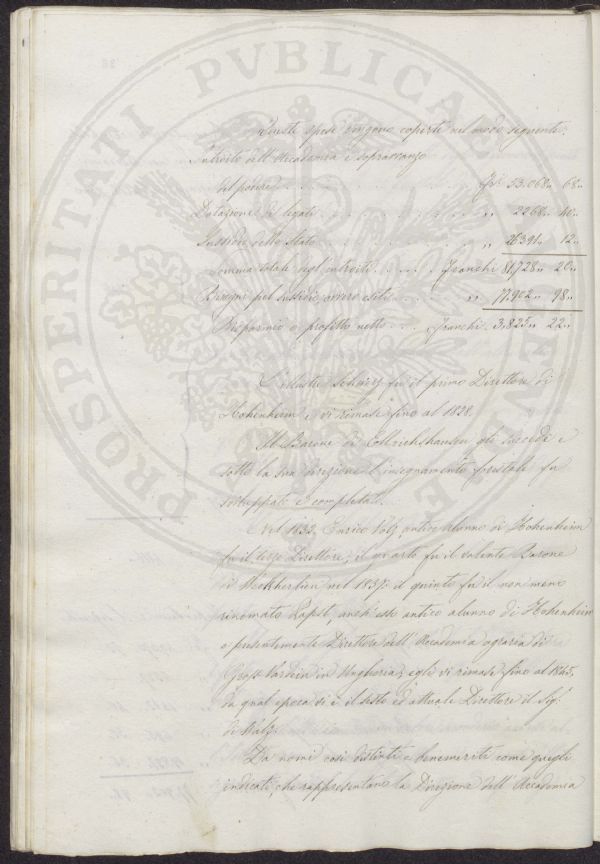 Queste spese vengono coperte nel modo seguente:
Introito dell'Accademia e sopravanzo
del podere . . . . . . . . . . Fr.i 53.068,, 68,,
Dotazione di legati . . . . . . . . . ,, 2268,, 40,,
Sussidio dello Stato . . . . . . . . . ,, 26391,, 12,,
Somma totale degl'introiti . . . . . Franchi 81,728,, 20,,
Bisogni pel sussidio, ovvero esiti . . . . ,, 77.902,, 98,,
Risparmio o profitto netto . . . Franchi. 3.825,, 22,,
L'illustre Schwerz fu il primo Direttore di
Hohenheim e vi rimase fino al 1828.
Il Barone di Ellrichshausen gli succede e
sotto la sua direzione l'insegnamento forestale fu
sviluppato e completato.
Nel 1832. Enrico Volz, antico alunno di Hohenheim
fu il terzo Direttore; il quarto fu il valente Barone
di Weckherlin nel 1837: il quinto fu il non meno
rinomato Pabst, anch'esso antico alunno di Hohenheim
e presentemente Direttore dell'Accademia agraria di
Gross Vardein in Ungheria; egli vi rimase fino al 1845.
da qual epoca vi è il sesto ed attuale Direttore il Sig.r
di Walz.
Da nomi così distinti e benemeriti come quegli
indicati, che rappresentano la Direzione dell'Accademia
PROSPERITATI PVBLICAE AVGENDAE